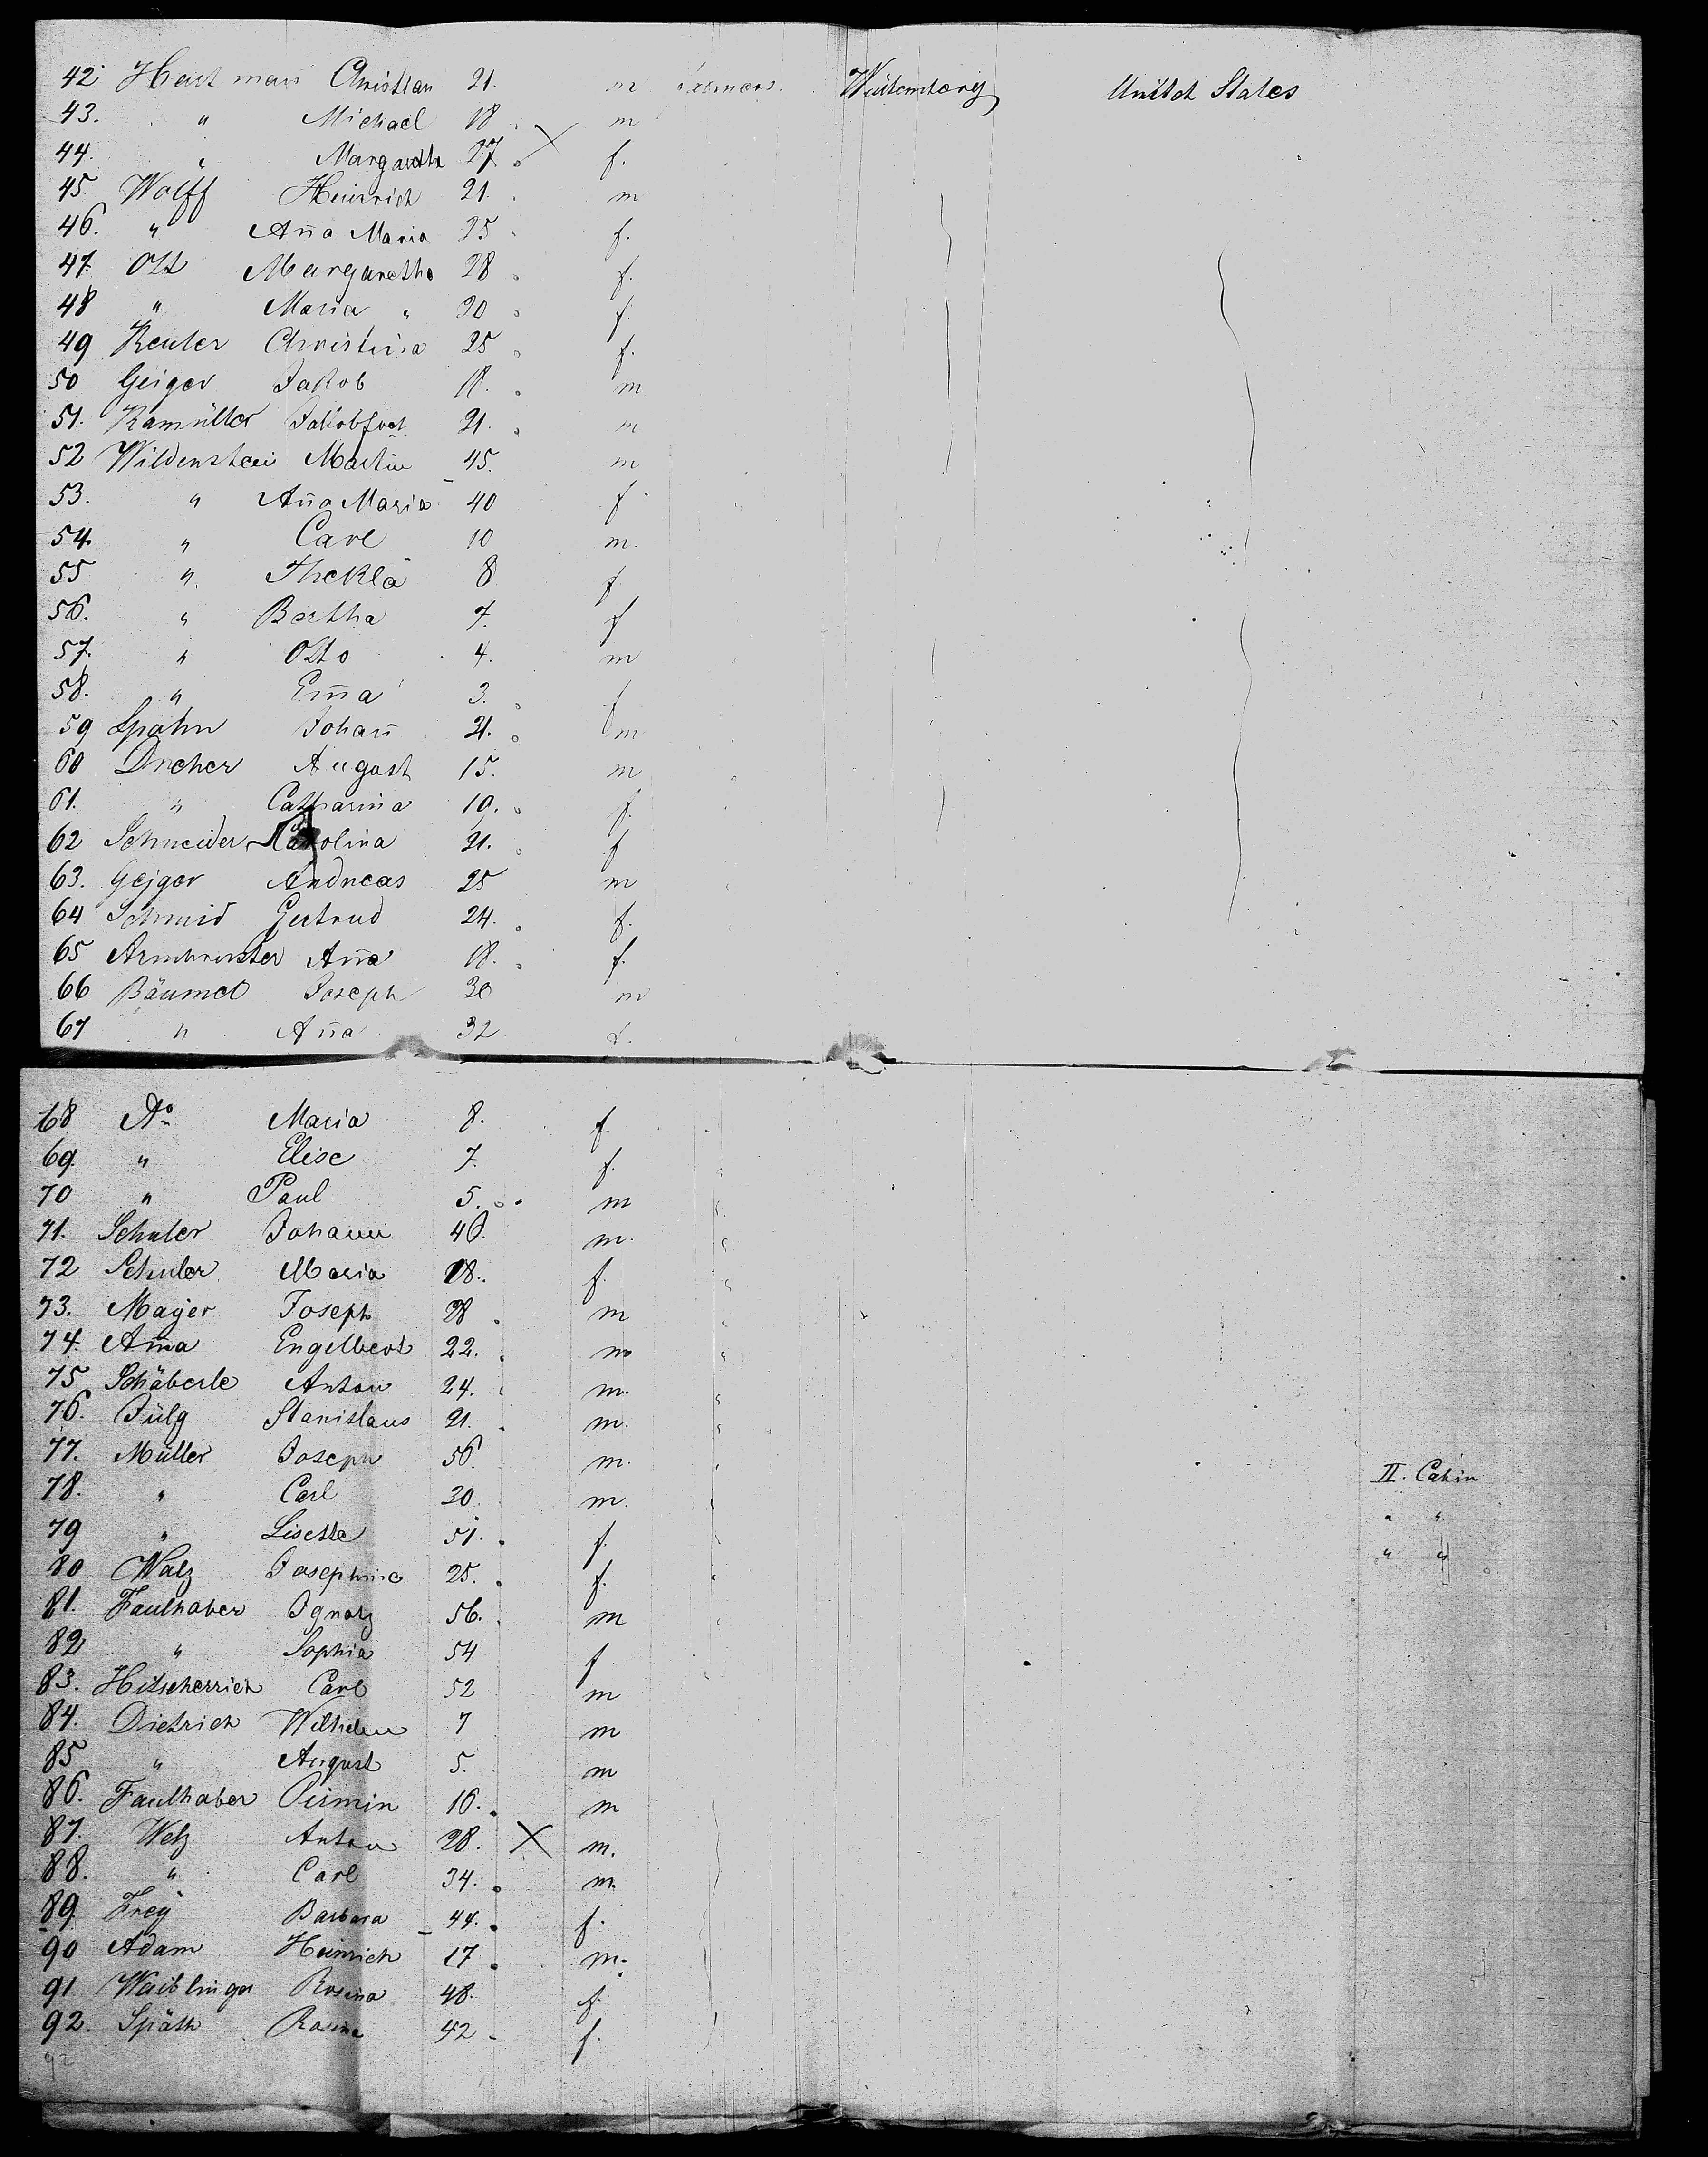 42 Hartmann Christian 21. m farmers. Würtemberg United States
43. " Michael 18 m
44. " Margareth 27 f.
45 Wolff Heinrich 21. m
46. " Aña Maria 25 f.
47. Ott Margaretha 28 f.
48 " Maria " 20 f.
49 Reuter Christina 25 f.
50 Geiger Jakob 18. m
51. Ramüller 21. m
52 Wildenstein Martin 45. m
53. " Aña Maria 40 f
54. " Carl 10 m.
55 " Thekla 8 f
56. " Bertha 7. f
57. " Otto 4. m
58. " Em̃a 3. f
59 Spahn Johañ 21. m
60 Dreher August 15. m
61. " Catharina 19. f.
62 Schneider Karolina 21. f
63. Gejger Andreas 25 m
64 Schmid Gertrud 24. f.
65 Armbruster Aña 18. f.
66 Bäumel Joseph 30 m
67 " Aña 32 f.
68 Maria 8. f
69. " Elise 7. f.
70 " Paul 5. m
71. Schuler Johann 46. m.
72 Schuler Maria 18. f.
73. Mayer Joseph 28 m
74. Anna Engelbert 22. m
75 Schäberle Anton 24. m.
76. Jülg Stanislaus 21. m.
77. Müller Joseph 56. m. II. Cabin
78. " Carl 30. m. " "
79 " Lisette 51. f. " "
80 Walz Josephine 25. f.
81. Faulhaber Ignatz 56. m
82 " Sophia 54 f
83. Hitscherrich Carl 52 m
84. Dietrich Wilhelm 7 m
85 " August 5. m
86. Faulhaber Pirmin 16. m
87. Welz Anton 28. X m.
88. " Carl 34. m.
89 Frey Barbara 44. f.
90 Adam Heinrich 17 m.
91 Waiblinger Rosina 48. f.
92. Späth Rosina 42 f.
92